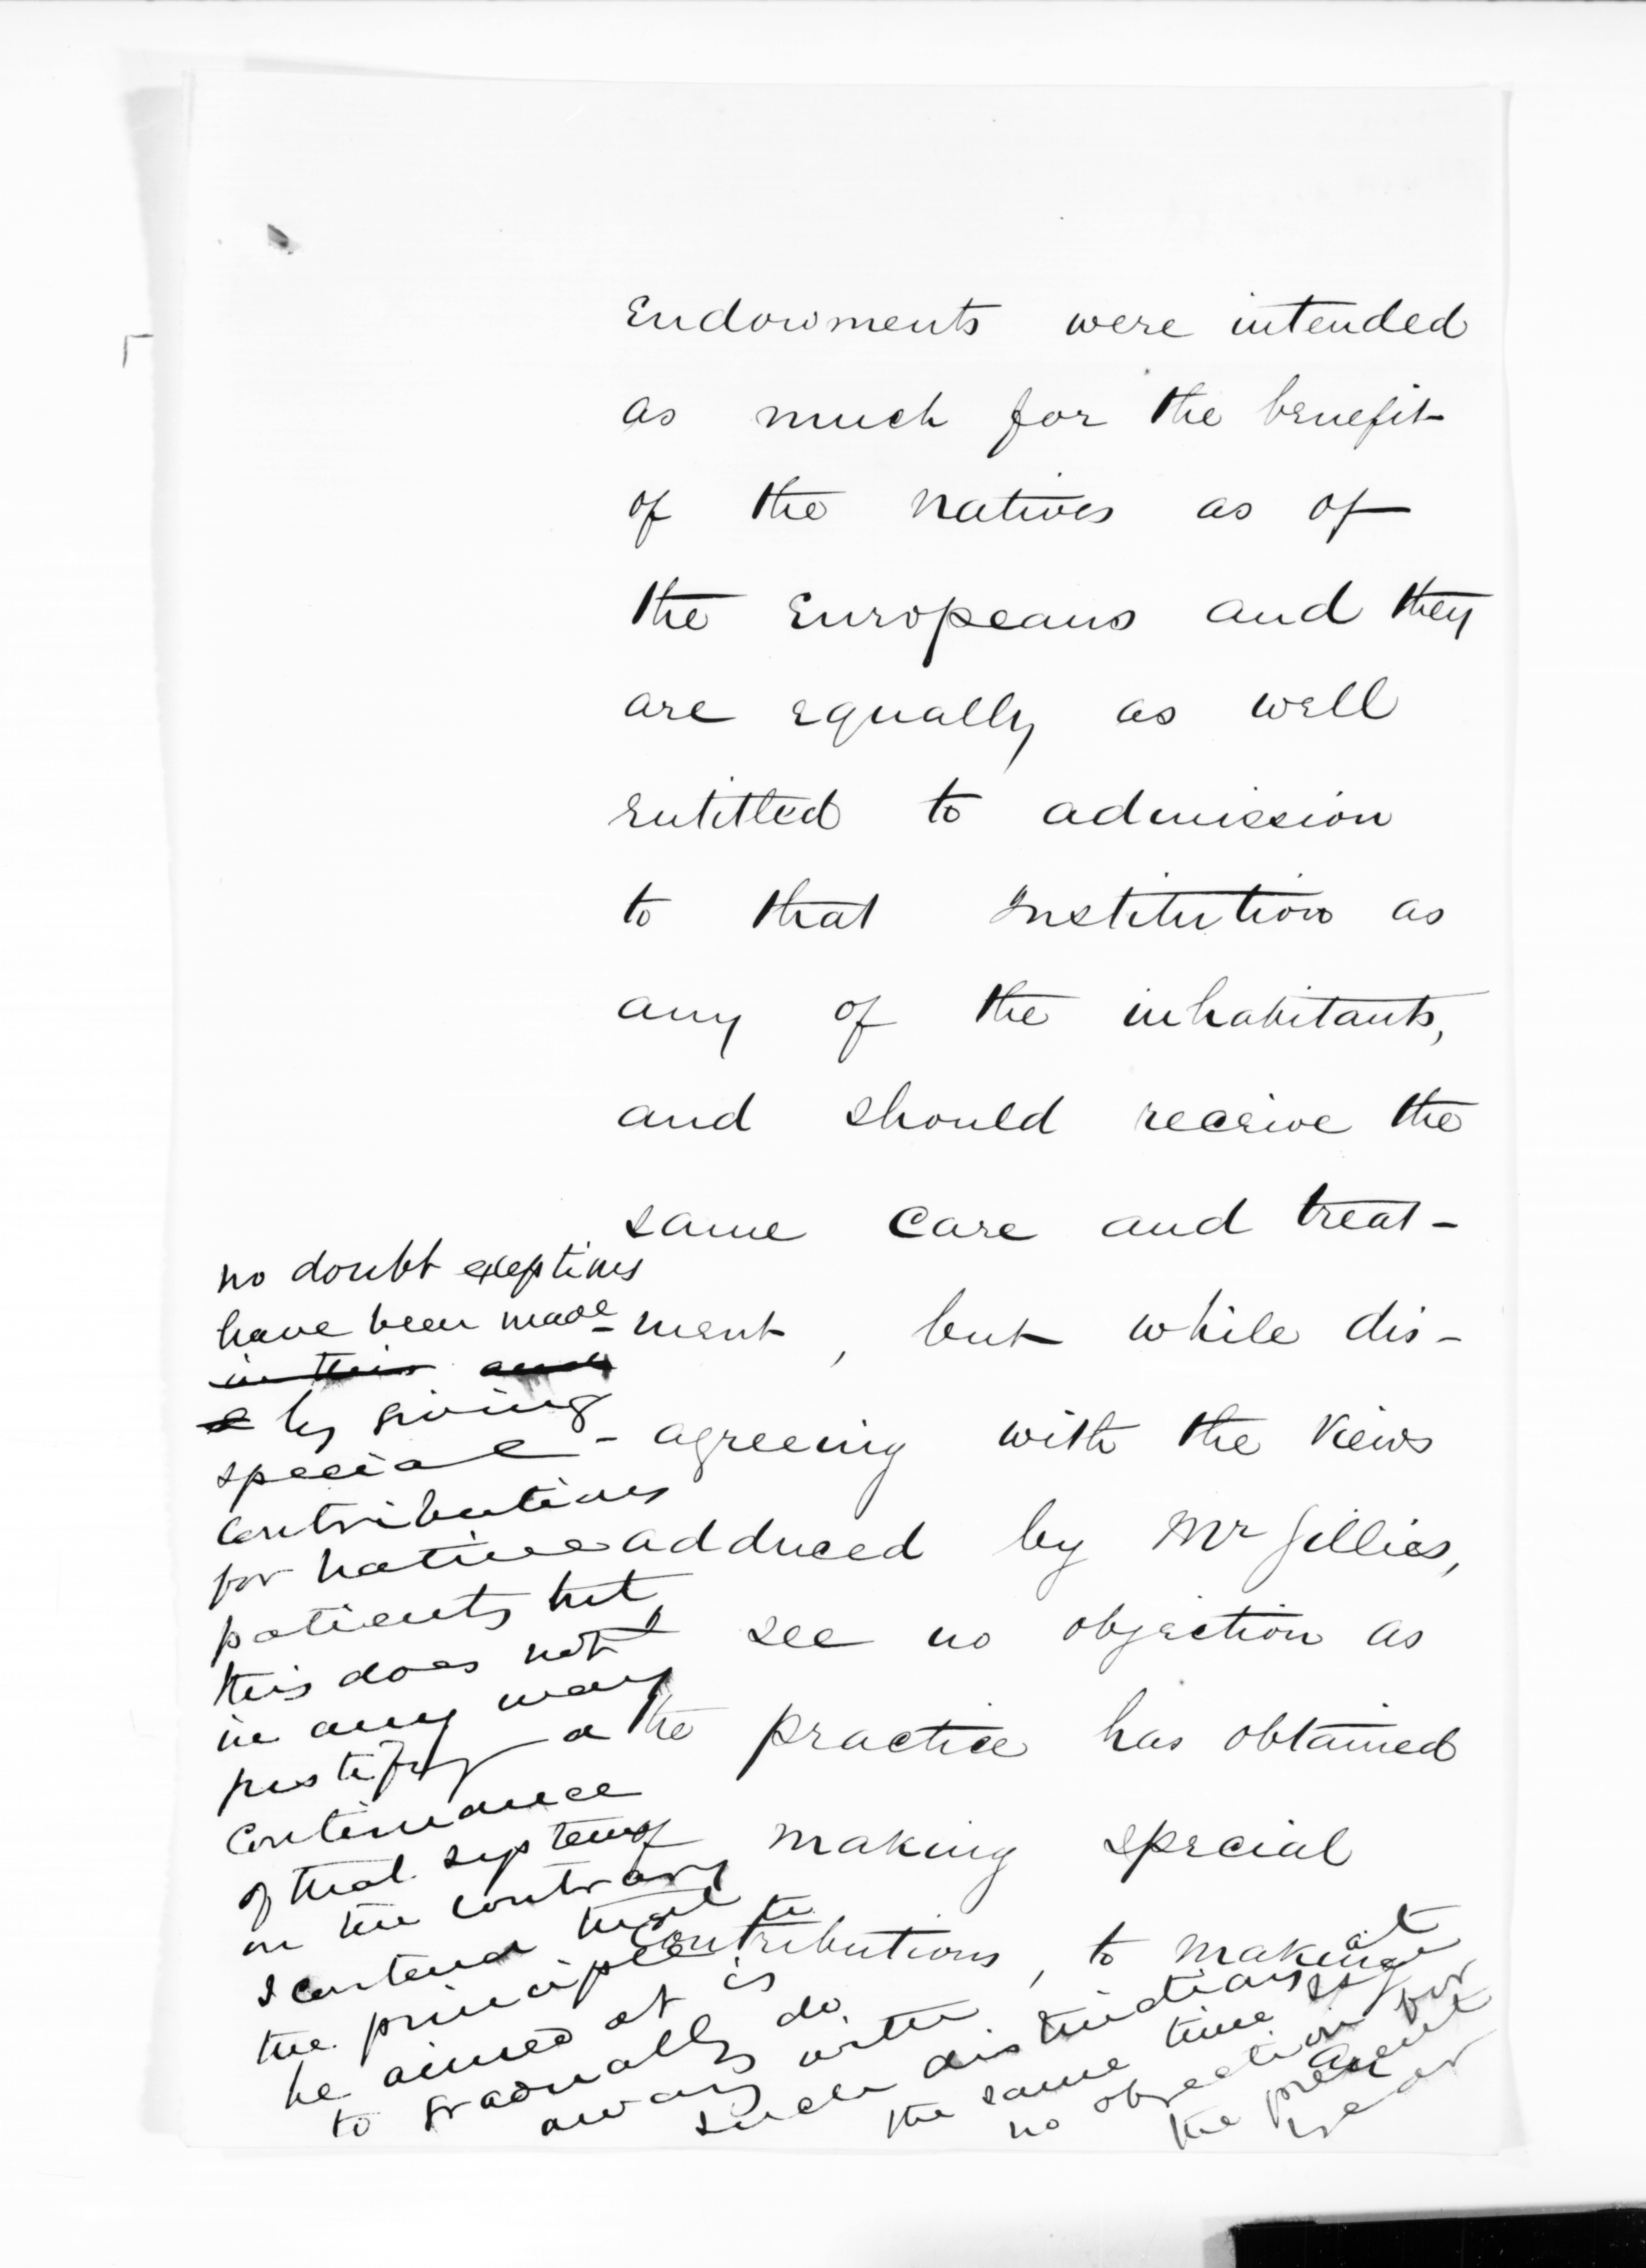 Endowments were intended
as much for the benefit
of the natives as of
the Europeans and they
are equally as well
entitled to admission
to that Institution as
any of the inhabitants,
and should receive the
same care and treat-
ment, but while dis-
agreeing with the views
adduced by Mr Gillies,
see no objection as
the practice has obtained
of making special
contributions, to making
no doubt exceptions
have been made
in this and
by giving
special
contributions
for native
patients but
this does not
in any way
justify a
continuance
of that system
on the contrary
I contend that
the principle to
be aimed at is
to gradually do
away with
such distinctions at
the same time I see
no objection for
the present
year